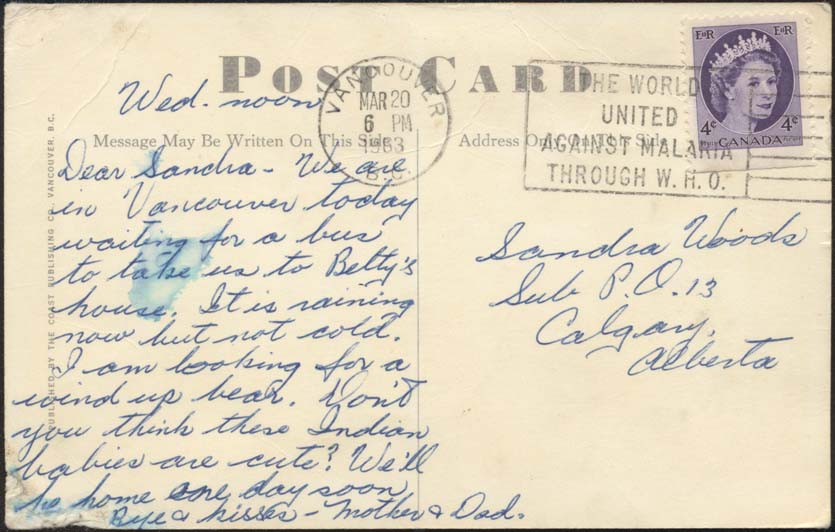 POST CARD
VANCOUVER
MAR 20
6 PM
1963
B.C.
THE WORLD
UNITED
AGAINST MALARIA
THROUGH W.H.O.
E II R
E II R
4¢
4¢
CANADA
Message May Be Written On This Side
Address Only On This Side
PUBLISHED BY THE COAST PUBLISHING CO. VANCOUVER, B.C.
Wed. noon
Dear Sandra - We are
in Vancouver today
waiting for a bus
to take us to Betty's
house. It is raining
now but not cold.
I am looking for a
wind up bear. Don't
you think these Indian
babies are cute? We'll
be home one day soon
Bye & kisses - Mother & Dad.
Sandra Woods
Sub P.O. 13
Calgary,
Alberta